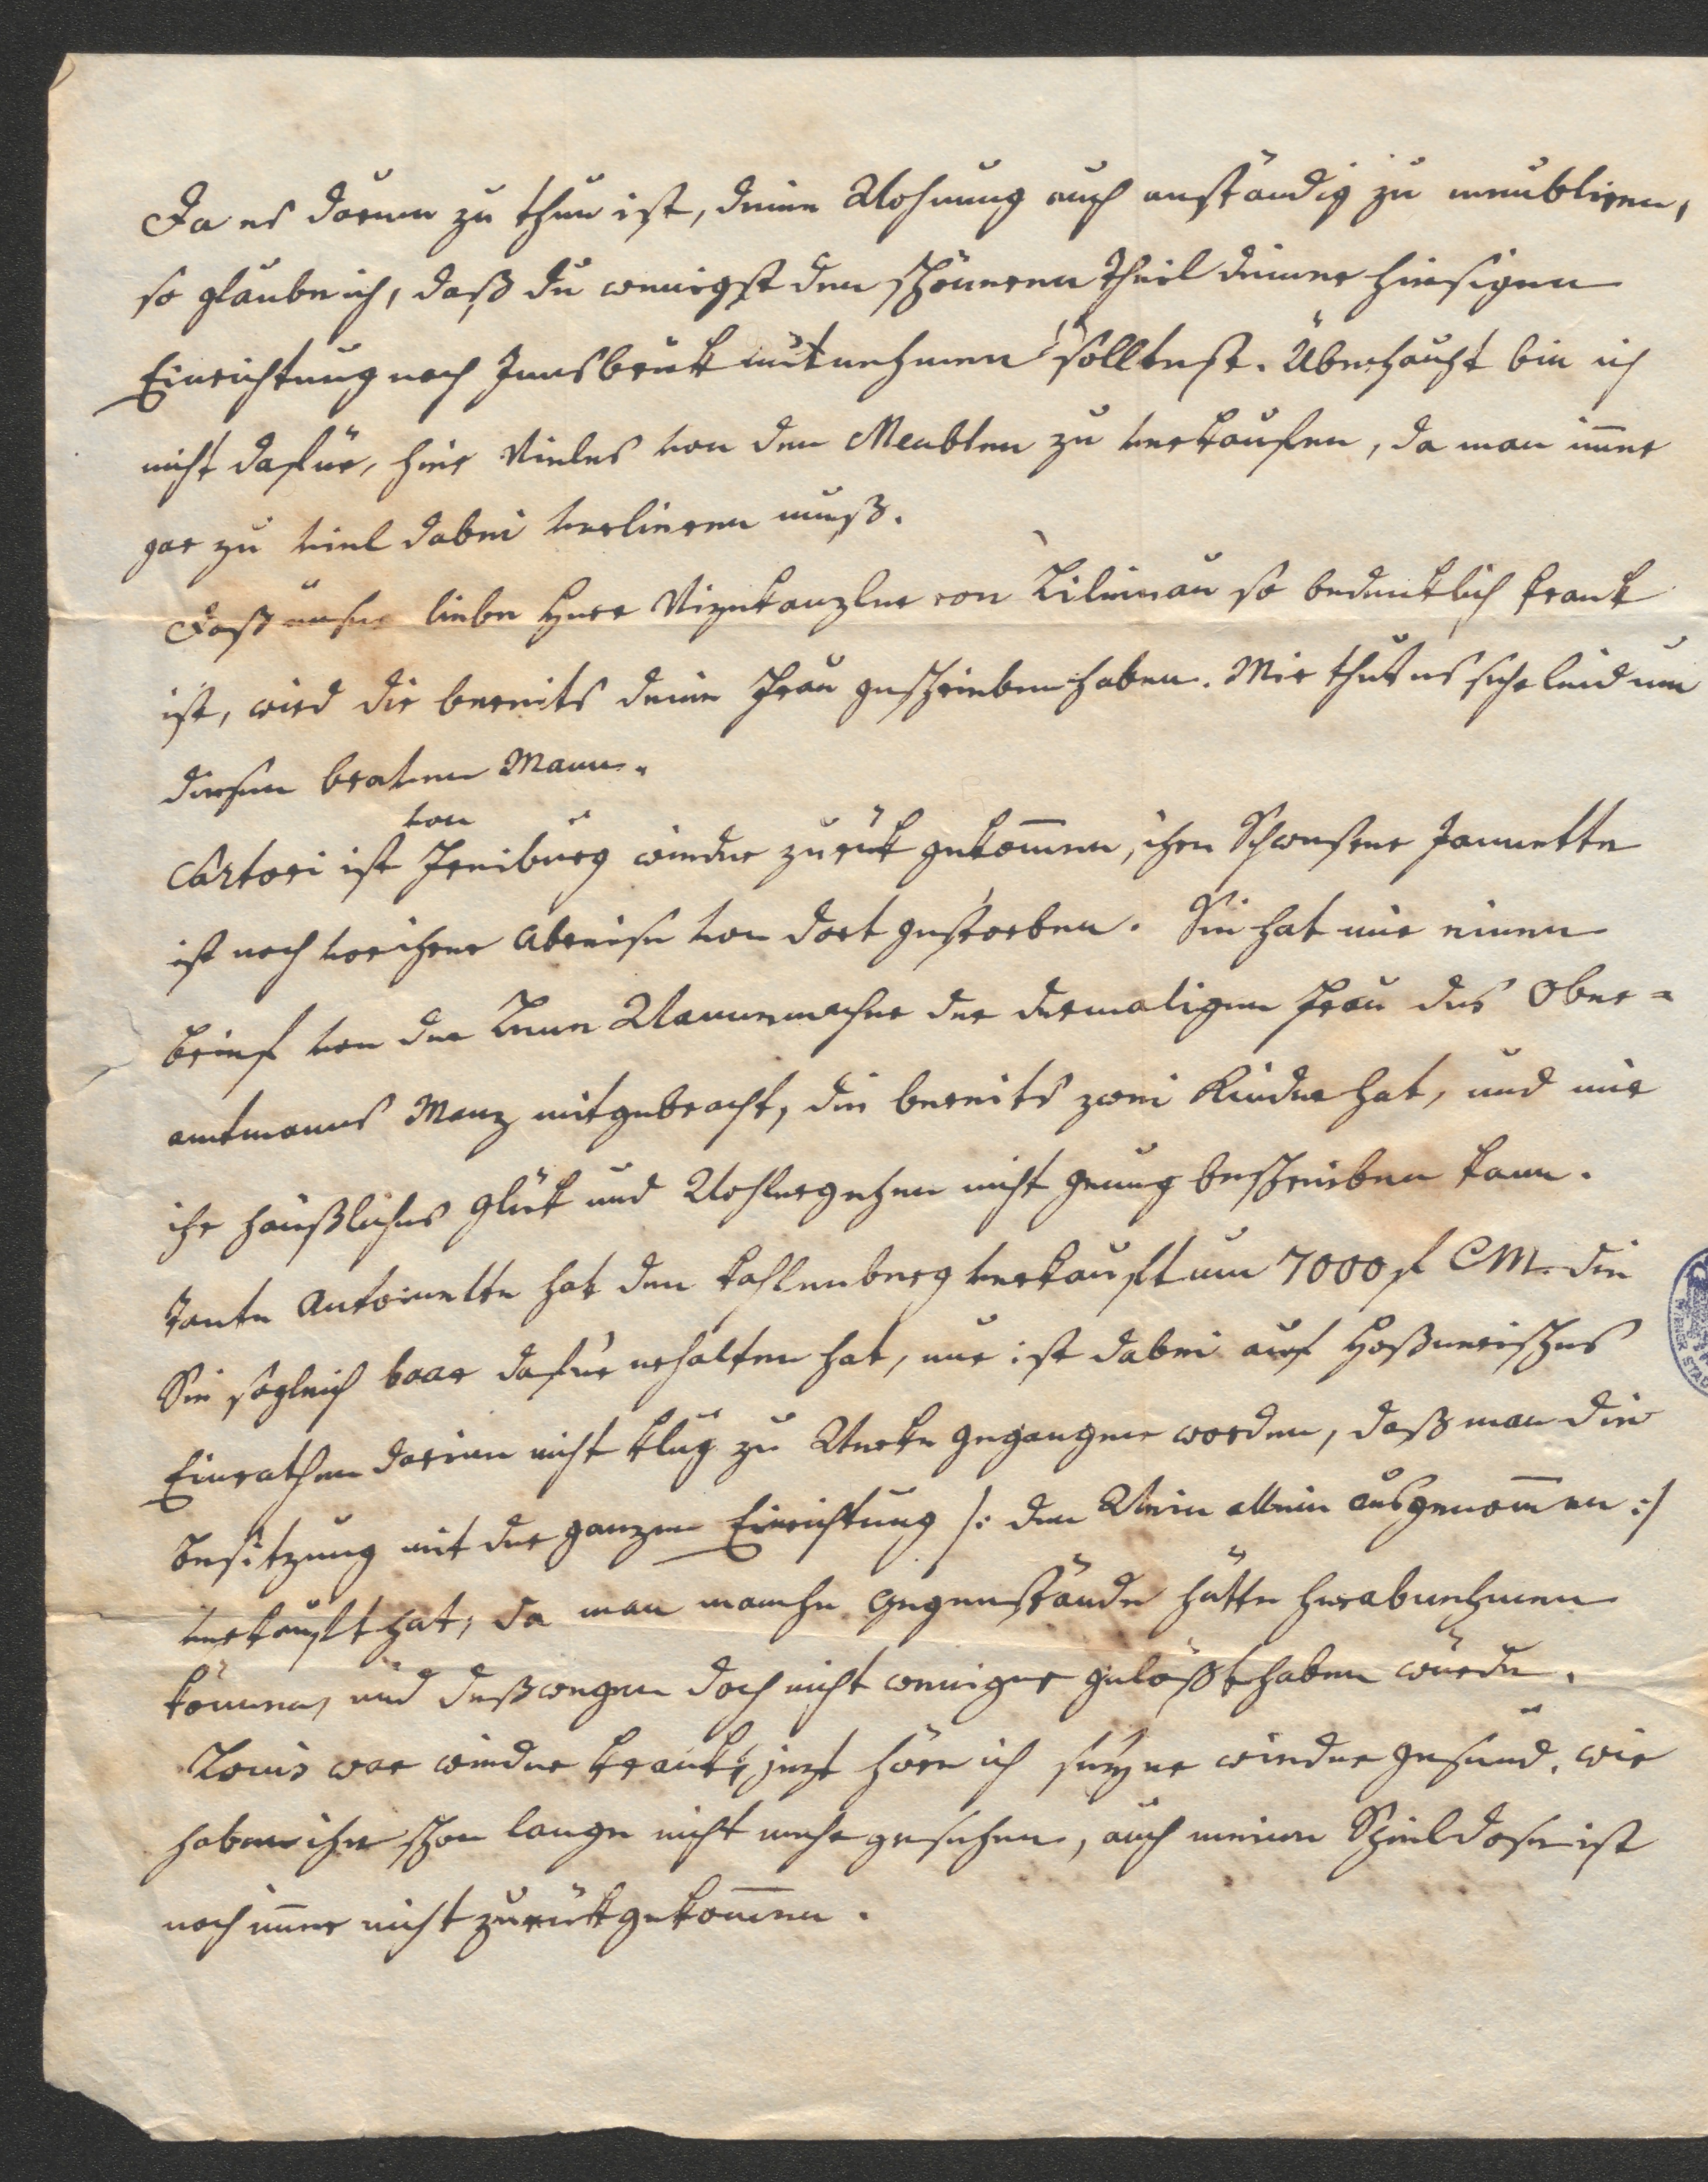 Da es darum zu thun ist, deine Wohnung auch anständig zu meubliren,
so glaube ich, daß du wenigst den schöneren Theil deiner hiesigen
Einrichtung nach Innsbruk mitnehmen solltest. Überhaupt bin ich
nicht dafür, hier Vieles von den Meublen zu verkaufen, da man im̅er
gar zu viel dabei verlieren muß.
Daß unser liebe Herr Vizekanzler von Lilienau so bedenklich krank
ist, wird dir bereits deine Frau geschrieben haben. Mir thut es sehr leid um
diesen braven Mann.
von
Sartori ist Freiburg wieder zurük gekom̅en, ihre Schwester Jannette
ist noch vor ihrer Abreise von dort gestorben. Sie hat mir einen
Brief von der Wannemacher der dermaligen Frau des Ober=
amtmanns Manz mitgebracht, die bereits zwei Kinder hat, und mir
ihr häußliches Glük und Wohlergehen nicht genug beschreiben kann.
Tante Antoinette hat den Kahlenberg verkauft um 7000 f CM. die
Sie sogleich baar dafür erhalten hat, nur ist dabei auf
Einrathen darinn nicht klug zu Werke gegangen worden, daß man die
Besitzung mit der ganzen Einrichtung /: den Wein allein ausgenom̅en :/
verkauft hat, da man manche Gegenstände hätte herabnehmen
können, und deßwegen doch nicht weniger gelößt haben würde.
Louis war wieder krank, jezt höre ich sey er wieder gesund. wir
haben ihn schon lange nicht mehr gesehen, auch meine Spieldose ist
noch im̅er nicht zurükgekom̅en.